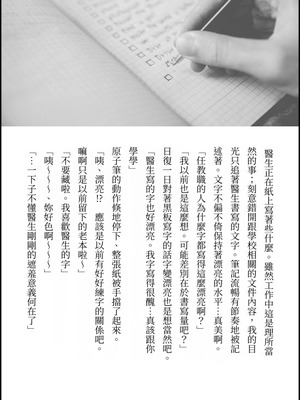 醫生正在紙上寫著些什麼。雖然工作中這是理所當
然的事；刻意錯開跟學校相關的文件內容，我的目
光只追著醫生書寫的文字。筆記流暢有節奏地被記
述著。文字不偏不倚保持著漂亮的水平…真美啊。
「任教職的人為什麼字都寫得這麼漂亮啊？」
「我以前也是這麼想。可能差別在於書寫量吧？」
日復一日對著黑板寫字的話字變漂亮也是想當然吧。
「醫生寫的字也好漂亮。我字寫得很醜…真該跟你
學學」
原子筆的動作倏地停下、整張紙被手擋了起來。
「咦、漂亮!?　應該是以前有好好練字的關係吧。
嘛啊只是以前留下的老本啦~」
「不要藏啦。我喜歡醫生的字」
「咦～～～、妳好色啊～～～」
「…一下子不懂醫生剛剛的遮羞意義何在了」